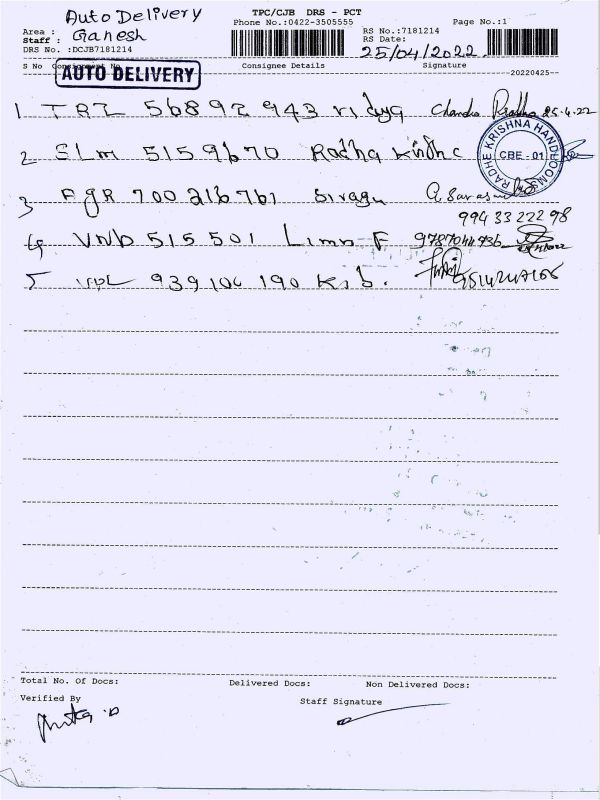 Auto Delivery TPC/CJB DRS - PCT
Phone No.:0422-3505555 Page No.:1
Area : RS No.:7181214
Staff : Ganesh RS Date:
DRS No. :DCJB7181214 25/04/2022
S No Consignment No Consignee Details Signature
AUTO DELIVERY --20220425--
1 TRZ 56892943 Vidya Chandra 25.4.22
2 SLM 5159670 Radha
RADHE KRISHNA HANDLOONS
CBE - 01
3 AGR 700216761 Siragu
994 33 222 98
4 VNB 515501 Limn F 9787044736
5 939106190 9514247166
Total No. Of Docs: Delivered Docs: Non Delivered Docs:
Verified By Staff Signature